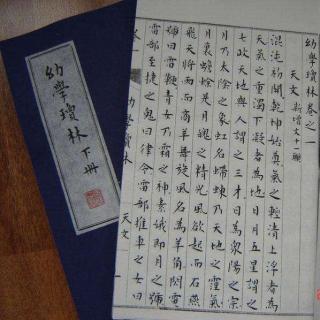 幼學瓊林卷之一
天文 新增文十一聯
混沌初開乾坤始奠氣之輕清上浮者為
天氣之重濁下凝者為地日月五星謂之
七政天地與人謂之三才日為衆陽之宗
月乃太陰之象虹名螮蝀乃天地之淫氣
月裏蟾蜍是月魄之精光風欲起而石燕
飛天將雨而商羊舞旋風名為羊角閃電
號曰雷鞭青女乃霜之神素娥即月之號
雷部至捷之鬼曰律令雷部推車之女曰
幼學瓊林
天文
一
幼學瓊林下冊